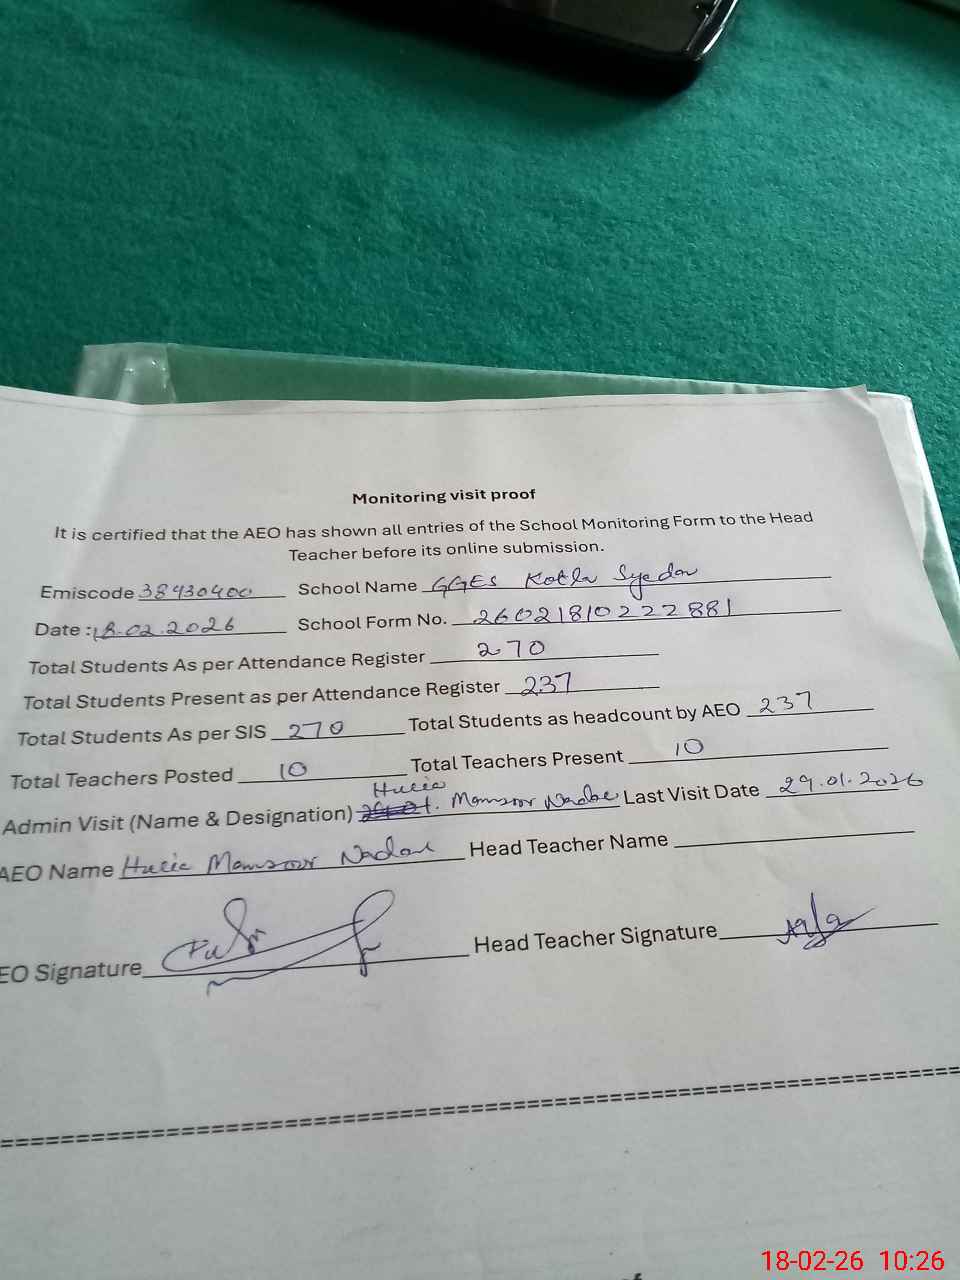 Monitoring visit proof
It is certified that the AEO has shown all entries of the School Monitoring Form to the Head
Teacher before its online submission.
Emiscode 38430400 School Name GGES Kotla Syedan
Date : 18.02.2026 School Form No. 26021810222881
Total Students As per Attendance Register 270
Total Students Present as per Attendance Register 237
Total Students As per SIS 270 Total Students as headcount by AEO 237
Total Teachers Posted 10 Total Teachers Present 10
Admin Visit (Name & Designation) Mansoor Last Visit Date 29.01.2026
AEO Name Mansoor Head Teacher Name
EO Signature Head Teacher Signature
18-02-26 10:26